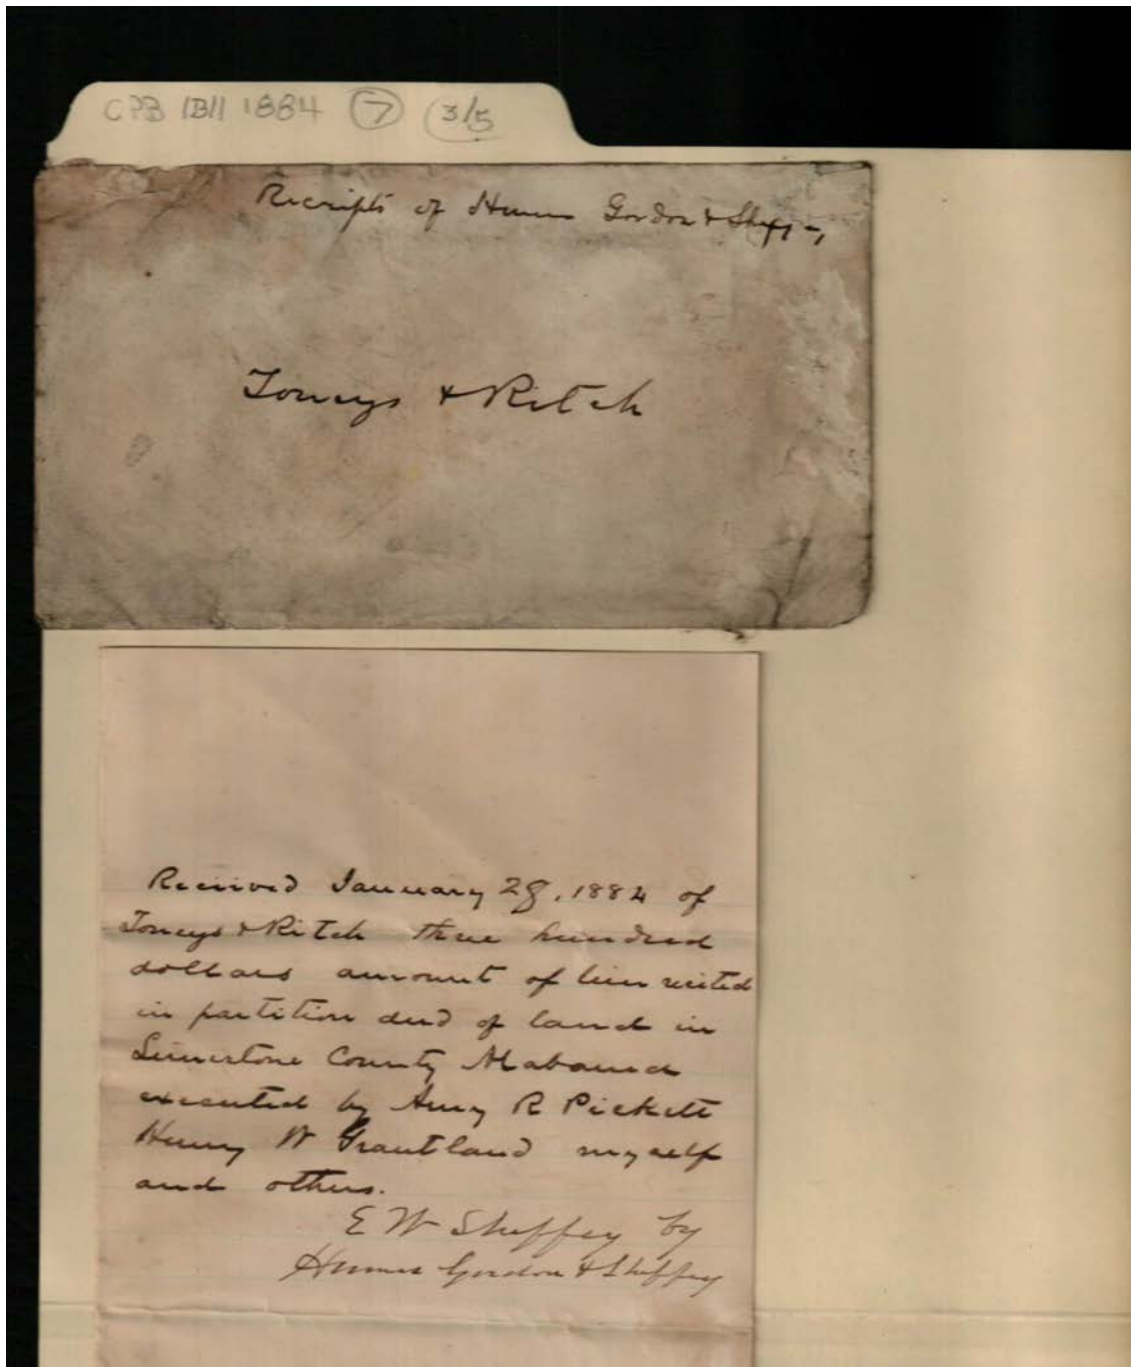 CPB 1B11 1884 7 3/5
Receipts of Humes Gordon & Sheffey
Toneys & Ritch
Received January 28, 1884 of
Toneys & Ritch three hundred
dollars amount of lien recited
in partition deed of land in
Limestone County Alabama
executed by Amy R Pickett
Henry W Grantland myself
and others.
E W Sheffey by
Humes Gordon & Sheffey